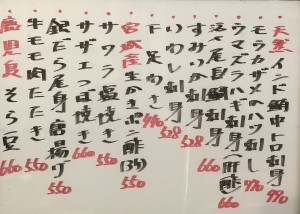 天然インド鮪中トロ刺身 990
モウカザメのハツ刺し 770
ウマズラハギ刺身(肝酢) 660
活〆尾長鯛刺身 660
すみいか刺身 528
いわし刺身 528
〃 足わき 440
宮城産生かきポン酢(3ヶ) 550
サワラ塩焼き 550
サザエつぼ焼き 660
銀だら尾身唐揚げ 550
牛モモ肉たたき 550
鹿児島そら豆 660